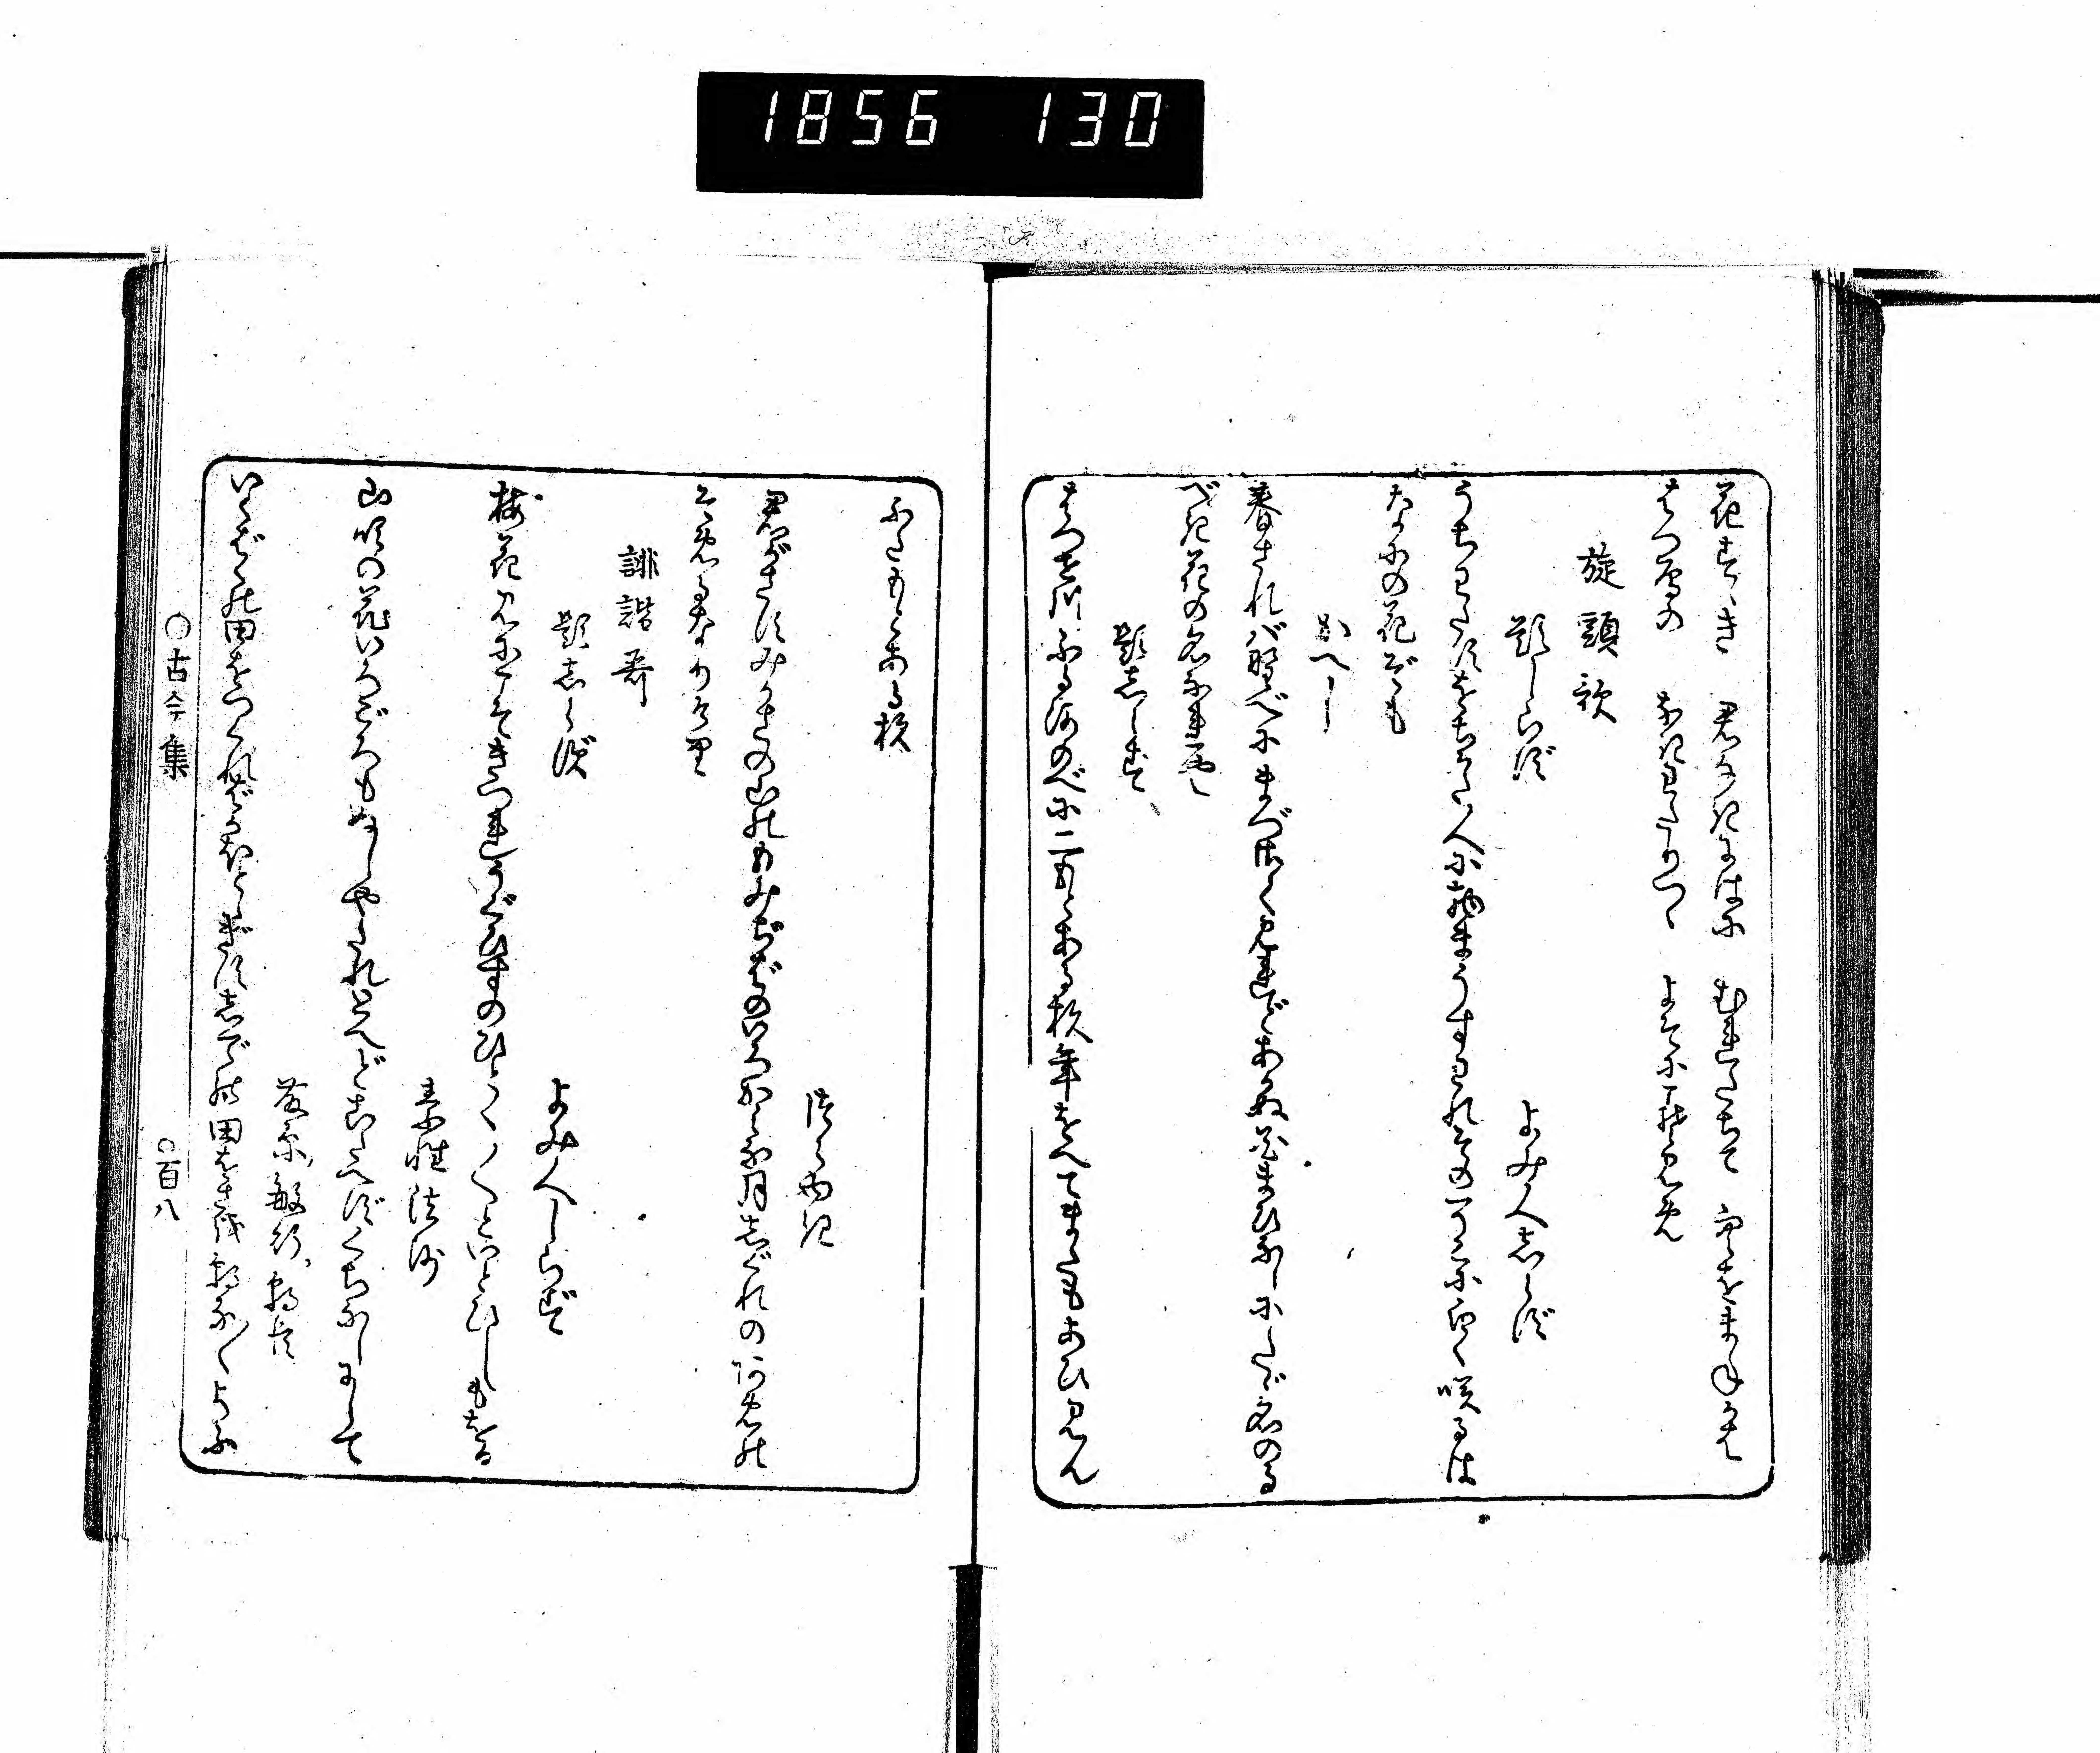 1856 130
花すゝき 君なきにはに むれたちて 空をまねかば
はつ雁の なきわたりつゝ よそにこそ見め
旋頭歌
題しらず
よみ人しらず
うちわたすをちかた人に物まうすわれそのそこに白く咲るは
なにの花ぞも
かへし
春されば野べにまづさく見れどあかぬ花まひなしにたゞ名のる
べき花の名なれや
題しらず
はつせ川ふる河のべに二もとある杉年をへてまたもあひ見ん
ふたもとある杉
つらゆき
君がさすみかさの山のもみぢばのいろかみな月しぐれのあめの
そめるなりけり
誹諧哥
題しらず
よみ人しらず
梅花見にこそきつれうぐひすのひとく〳〵といとひしもをる
素性法師
山吹の花いろごろもぬしやたれとへどこたへずくちなしにして
藤原敏行朝臣
いくばくの田をつくればかほとゝぎすしでの田をさを朝な〳〵よぶ
○古今集
○百八